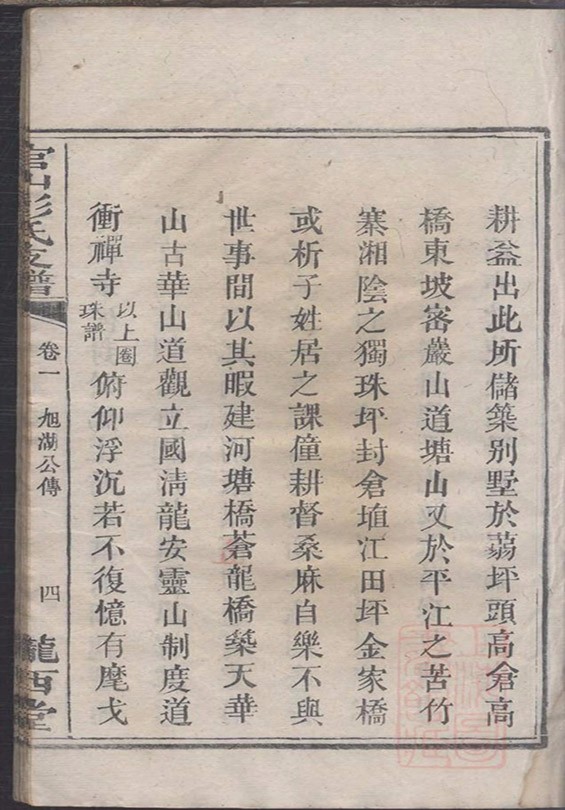 耕益出此所儲築別墅於蒻坪頭高倉高
橋東坡密巖山道塘山又於平江之苦竹
寨湘陰之獨珠坪封倉埴江田坪金家橋
或析子姓居之課僮耕督桑麻自樂不與
世事間以其暇建河塘橋蒼龍橋築天華
山古華山道觀立國清龍安靈山制度道
衝禪寺以上圈珠譜俯仰浮沉若不復憶有麾戈
官山彭氏支譜 卷一 旭湖公傳 四 隴西堂